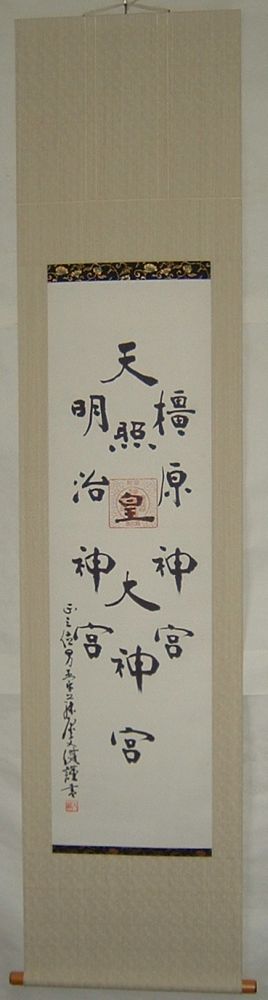 橿原神宮
天照皇大神宮
明治神宮
正三位男爵
謹書